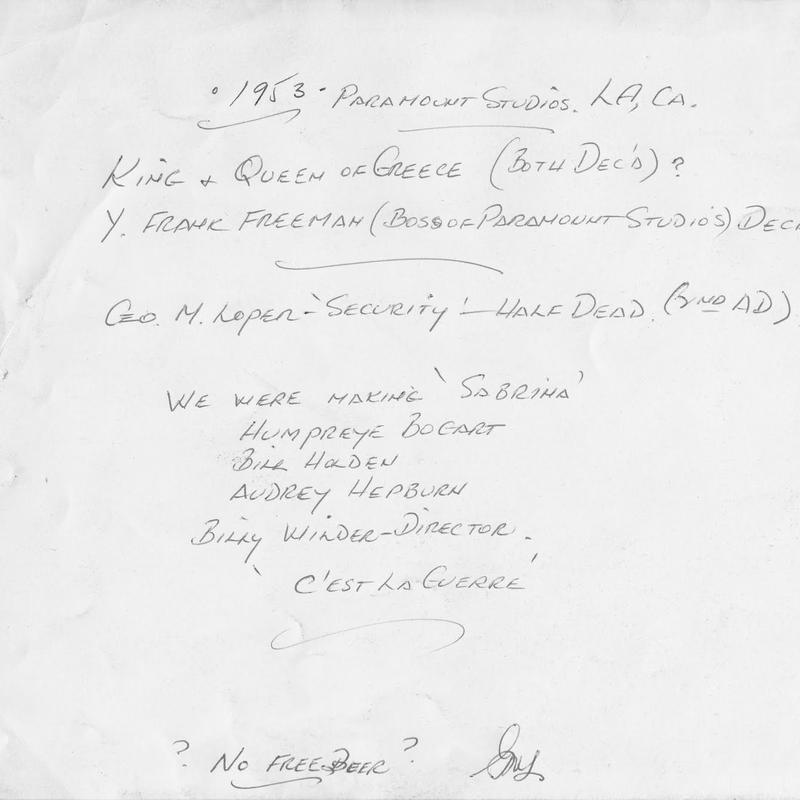 ° 1953 · PARAMOUNT STUDIOS. LA, CA.
KING & QUEEN OF GREECE (BOTH DEC'D) ?
Y. FRANK FREEMAN (BOSS OF PARAMOUNT STUDIOS) DEC
GEO. M. LOPER - 'SECURITY' - HALF DEAD. (2ND AD)
WE WERE MAKING 'SABRINA'
HUMPREYE BOGART
BILL HOLDEN
AUDREY HEPBURN
BILLY WILDER - DIRECTOR.
'C'EST LA GUERRE'
? NO FREE BEER ? GML